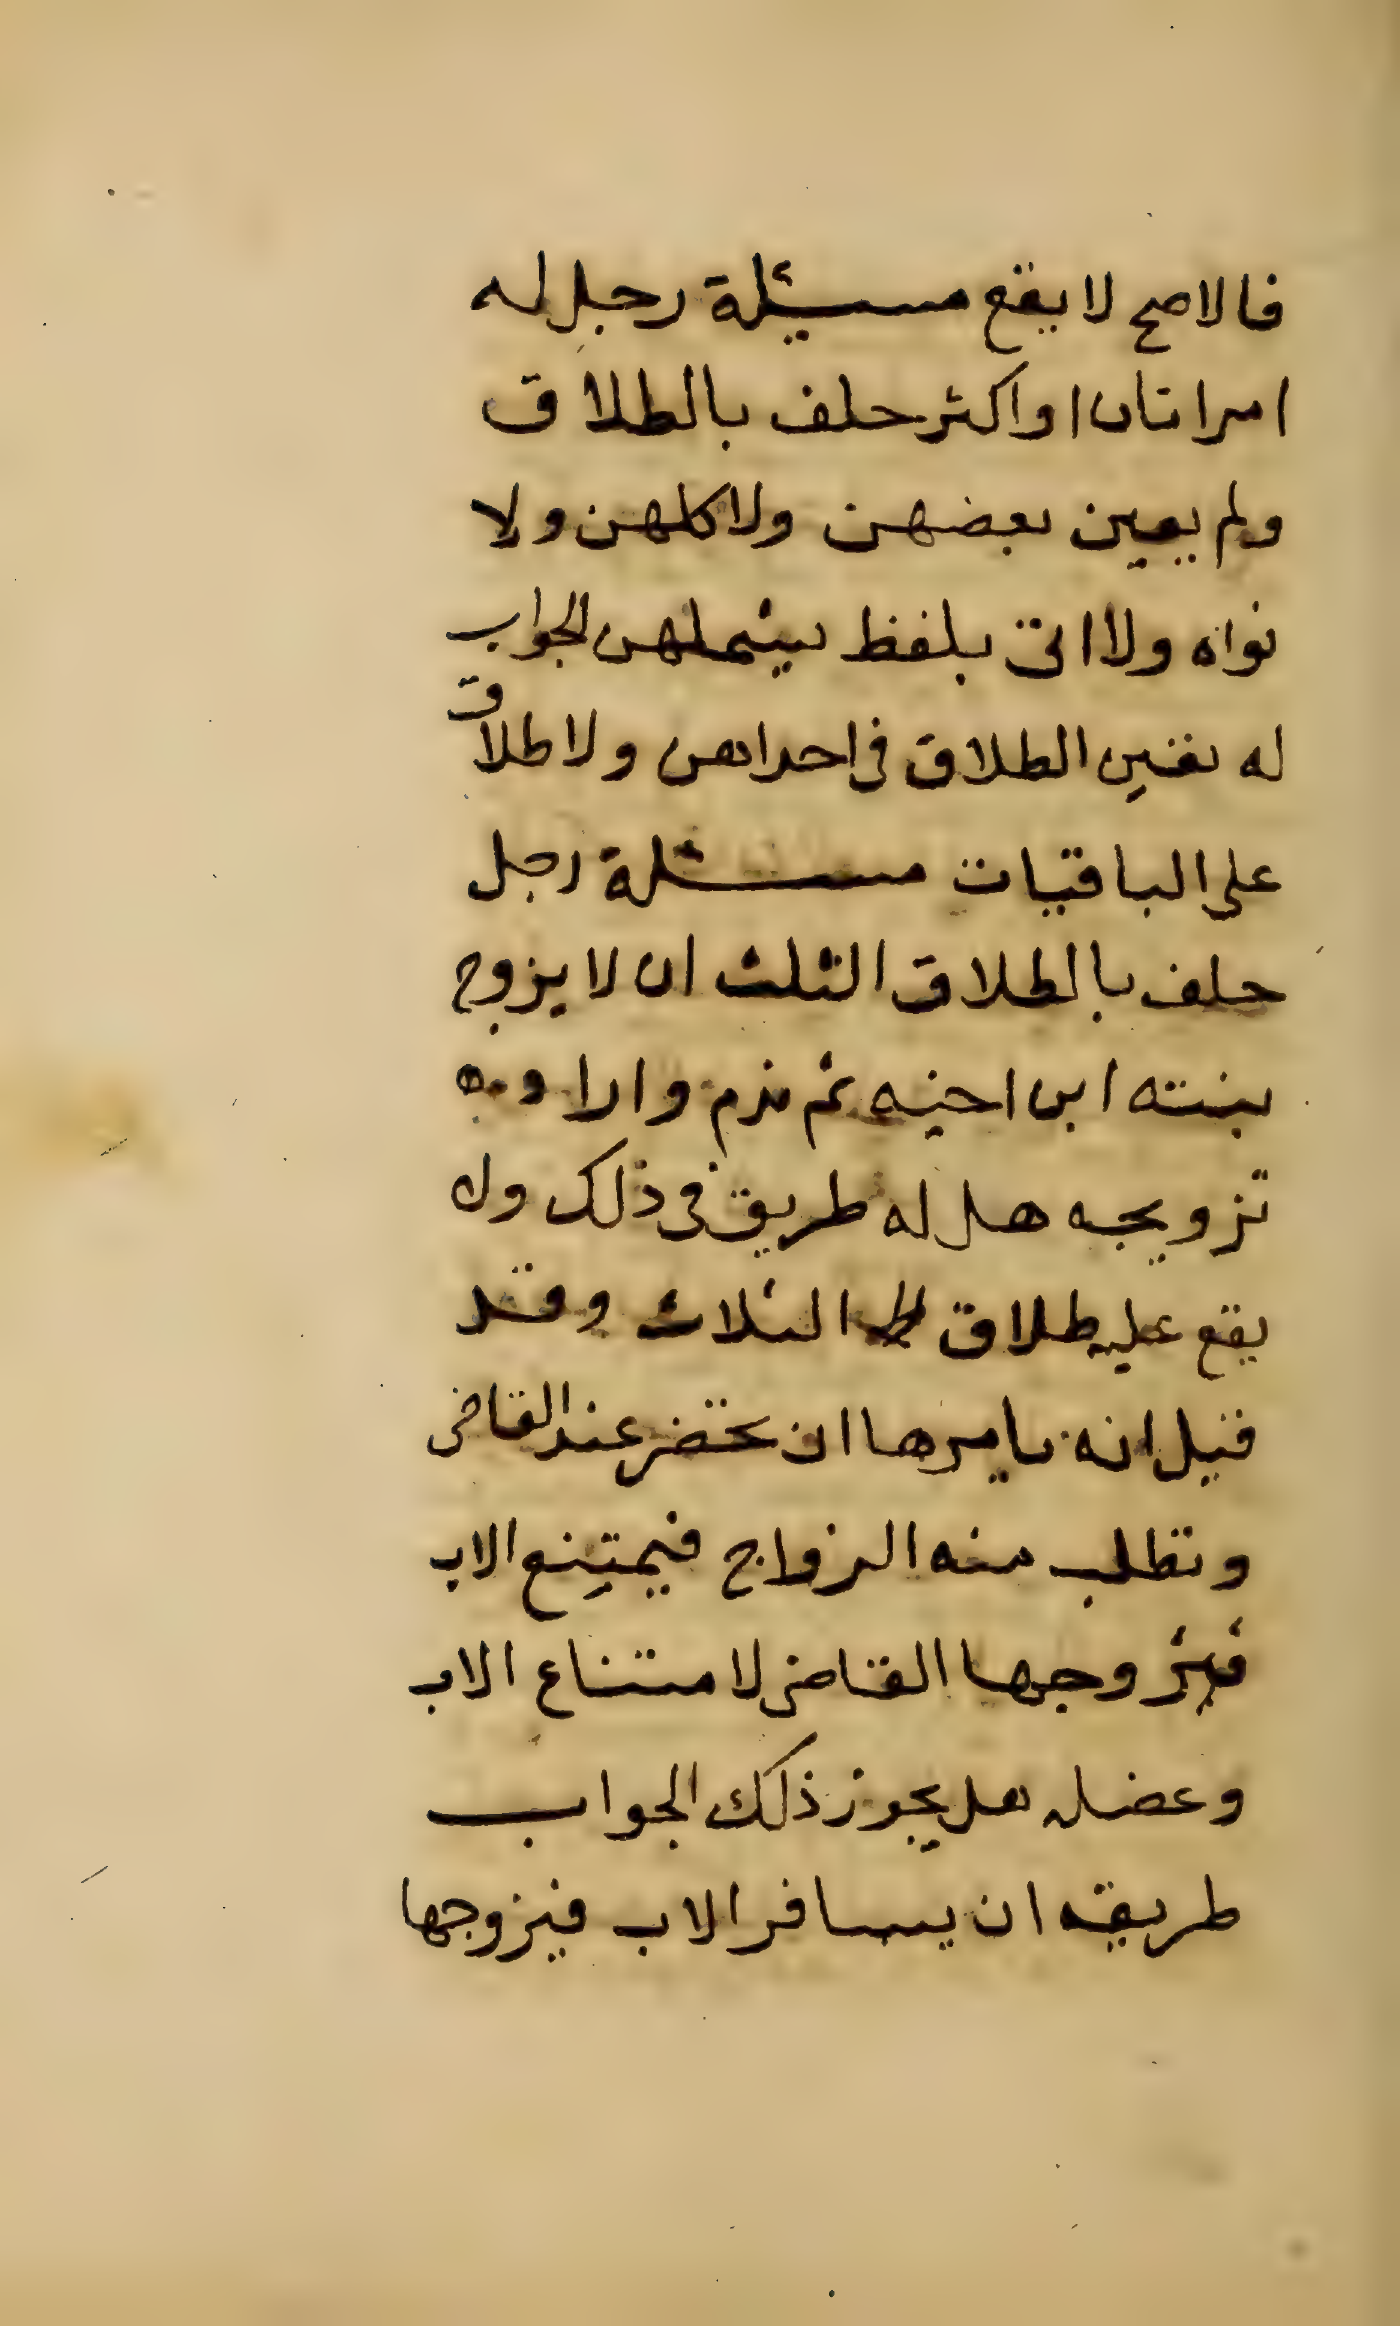 فالاصح لا يقع مسيئلة رجل له
امراتان او اكثر حلف بالطلاق
ولم يعين بعضهن ولا كلهن ولا
نواه ولا اتى بلفظ يشملهن الجواب
له تعيين الطلاق في احداهن ولا طلاق
على الباقيات مسئلة رجل
حلف بالطلاق الثلث ان لا يزوج
بنته ابن اخيه ثم ندم واراد
تزويجه هل له طريق في ذلك ولا
يقع عليه طلاق الثلاث وقد
قيل انه يامرها ان تحضر عند القاضى
وتطلب منه الزواج فيمتنع الاب
فيزوجها القاضى لامتناع الاب
وعضله هل يجوز ذلك الجواب
طريقه ان يسافر الاب فيزوجها